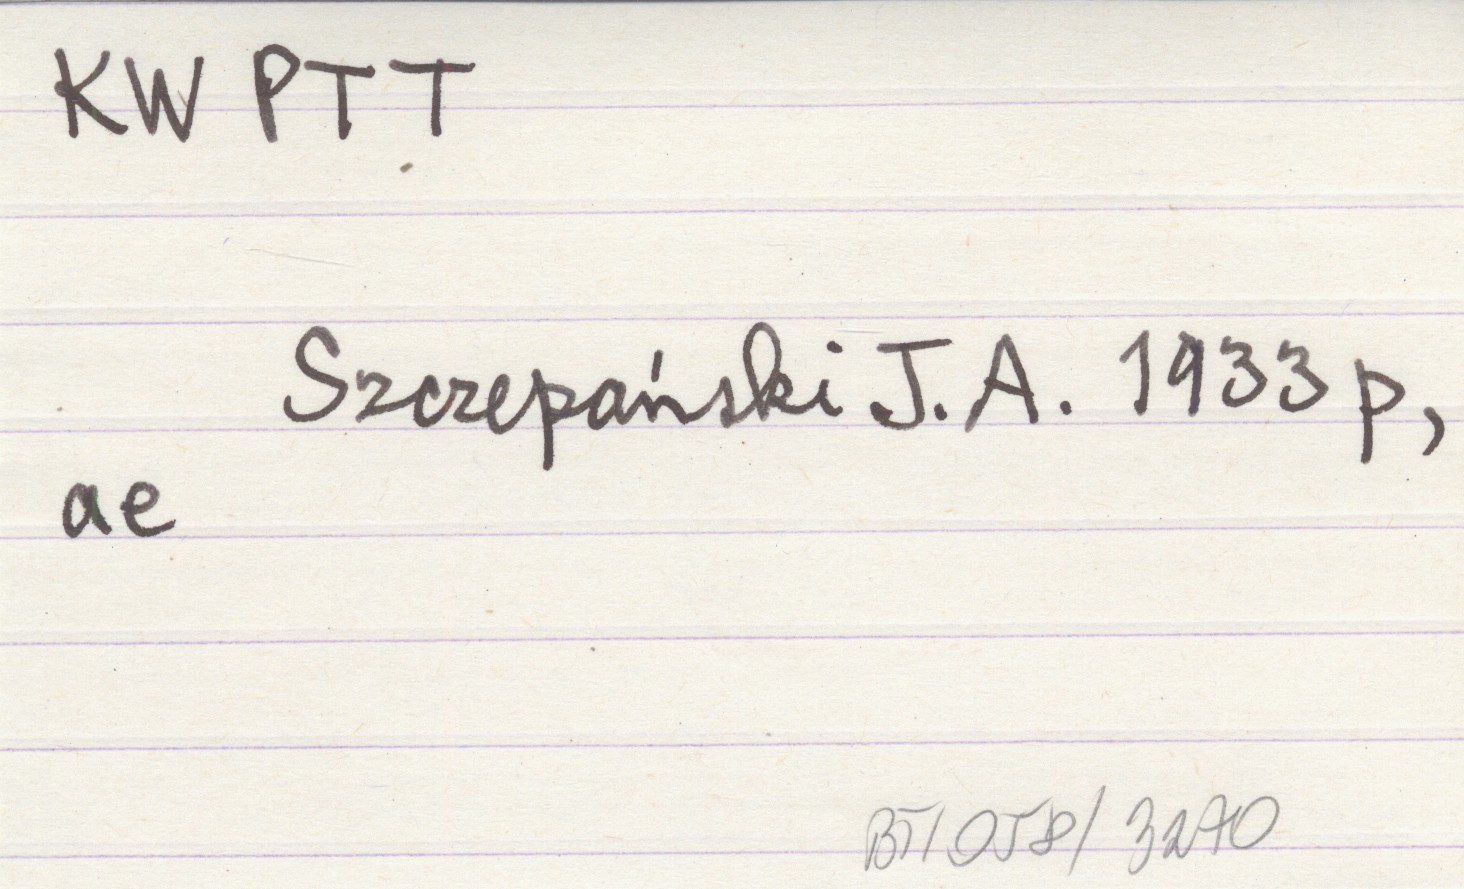 KW PTT
Szczepański J.A. 1933 p,
ae
BT/058/3270